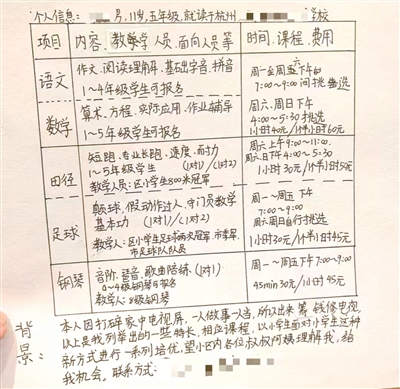 个人信息: 男, 11岁, 五年级, 就读于杭州 学校
项目 内容、教学人员、面向人员等 时间、课程、费用
语文 作文、阅读理解、基础字音、拼音
1~4年级学生可报名
周一至周五下午
7:00~9:00间挑选
数学 算术、方程、实际应用、作业辅导
1~5年级学生可报名
周六、周日下午
4:00~5:30挑选
1小时40元/1个半小时60元
田径 短跑、专业长跑、速度、耐力
1~5年级学生 (1对1)/(1对2)
教学人员: 区小学生800米冠军
周六上午9:00~11:00.
周六、日下午4:00~5:30
1小时30元/1个半小时50元
足球 颠球、假动作过人、守门员教学
基本功 (1对1)/(1对2)
教学人: 区小学生足球两次冠军、市季军、
市足球队队员
周一~周五下午
7:00~9:00
周六周日自行挑选
1小时30元/1个半小时45元
钢琴 音阶、琶音、歌曲陪练 (1对1)
0~4级钢琴可报名
教学人: 8级钢琴
周一~周五下午7:00~9:00
45min 30元/1小时45元
背景:
本人因打碎家中电视屏, 一人做事一人当, 所以出来筹钱修电视,
以上是我列举出的一些特长, 相应课程, 以小学生面对小学生这种
新方式进行一系列培优, 望小区内各位叔叔阿姨理解我, 给
我机会。联系方式: